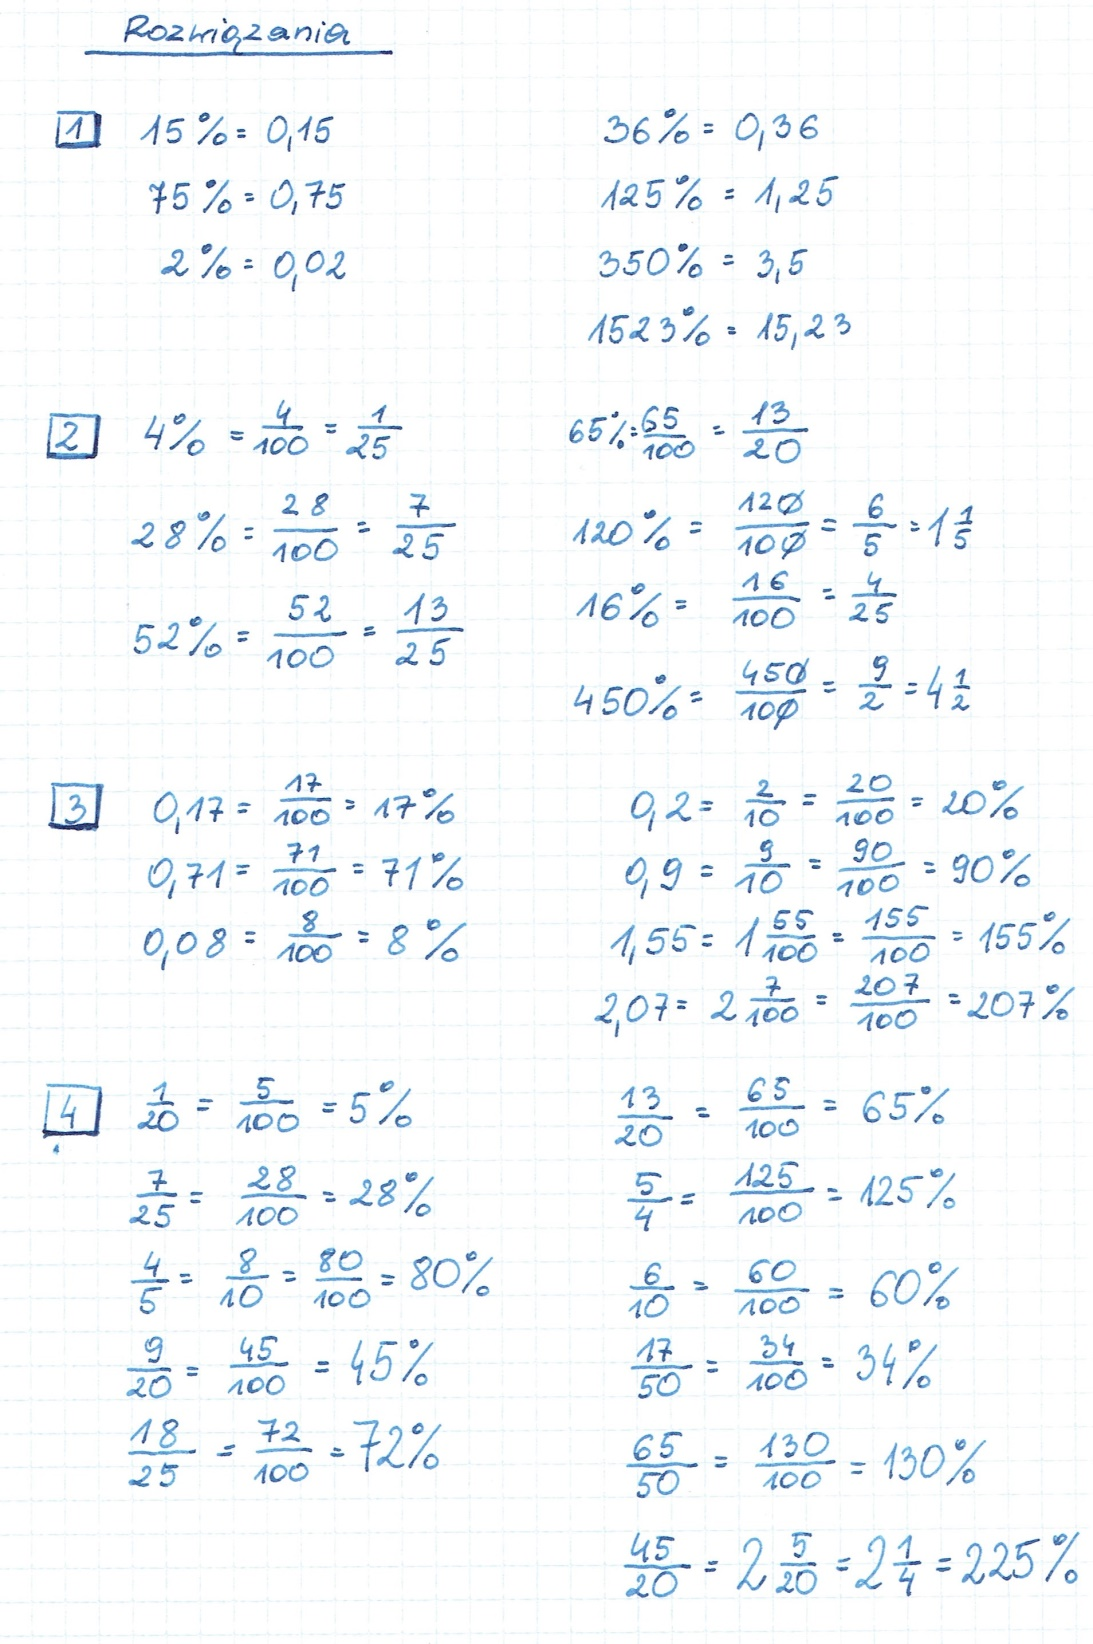 Rozwiązania
1 15% = 0,15
75% = 0,75
2% = 0,02
36% = 0,36
125% = 1,25
350% = 3,5
1523% = 15,23
2 4% = 4/100 = 1/25
28% = 28/100 = 7/25
52% = 52/100 = 13/25
65% = 65/100 = 13/20
120% = 120/100 = 6/5 = 1 1/5
16% = 16/100 = 4/25
450% = 450/100 = 9/2 = 4 1/2
3 0,17 = 17/100 = 17%
0,71 = 71/100 = 71%
0,08 = 8/100 = 8%
0,2 = 2/10 = 20/100 = 20%
0,9 = 9/10 = 90/100 = 90%
1,55 = 1 55/100 = 155/100 = 155%
2,07 = 2 7/100 = 207/100 = 207%
4 1/20 = 5/100 = 5%
7/25 = 28/100 = 28%
4/5 = 8/10 = 80/100 = 80%
9/20 = 45/100 = 45%
18/25 = 72/100 = 72%
13/20 = 65/100 = 65%
5/4 = 125/100 = 125%
6/10 = 60/100 = 60%
17/50 = 34/100 = 34%
65/50 = 130/100 = 130%
45/20 = 2 5/20 = 2 1/4 = 225%